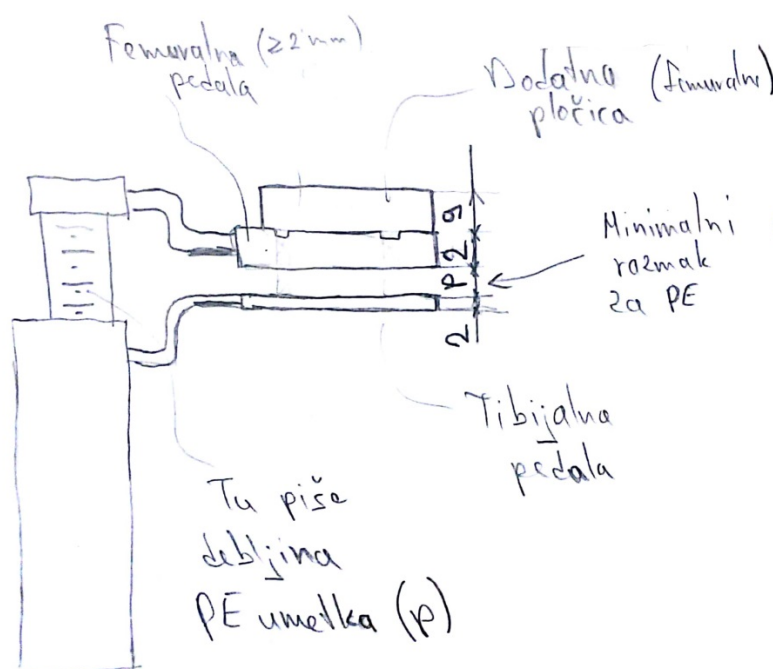 Femuralna (≥2mm)
pedala
Dodatna (femuralni)
pločica
9
2
p
2
Minimalni
razmak
za PE
Tibijalna
pedala
Tu piše
debljina
PE umetka (p)